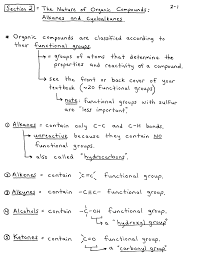 Section 2 - The Nature of Organic Compounds: 2-1
Alkanes and Cycloalkanes
* Organic compounds are classified according
to their functional groups.
↳ = groups of atoms that determine the
properties and reactivity of a compound.
↳ see the front or back cover of your
textbook (≈20 functional groups)
↳ note: functional groups with sulfur
are "less important".
① Alkanes = contain only C-C and C-H bonds.
↳ unreactive because they contain NO
functional groups.
↳ also called "hydrocarbons".
② Alkenes = contain C=C functional group.
③ Alkynes = contain -C≡C- functional group.
④ Alcohols = contain -C-OH functional group.
↳ a "hydroxyl group"
⑤ Ketones = contain C=O functional group.
↳ a "carbonyl group"